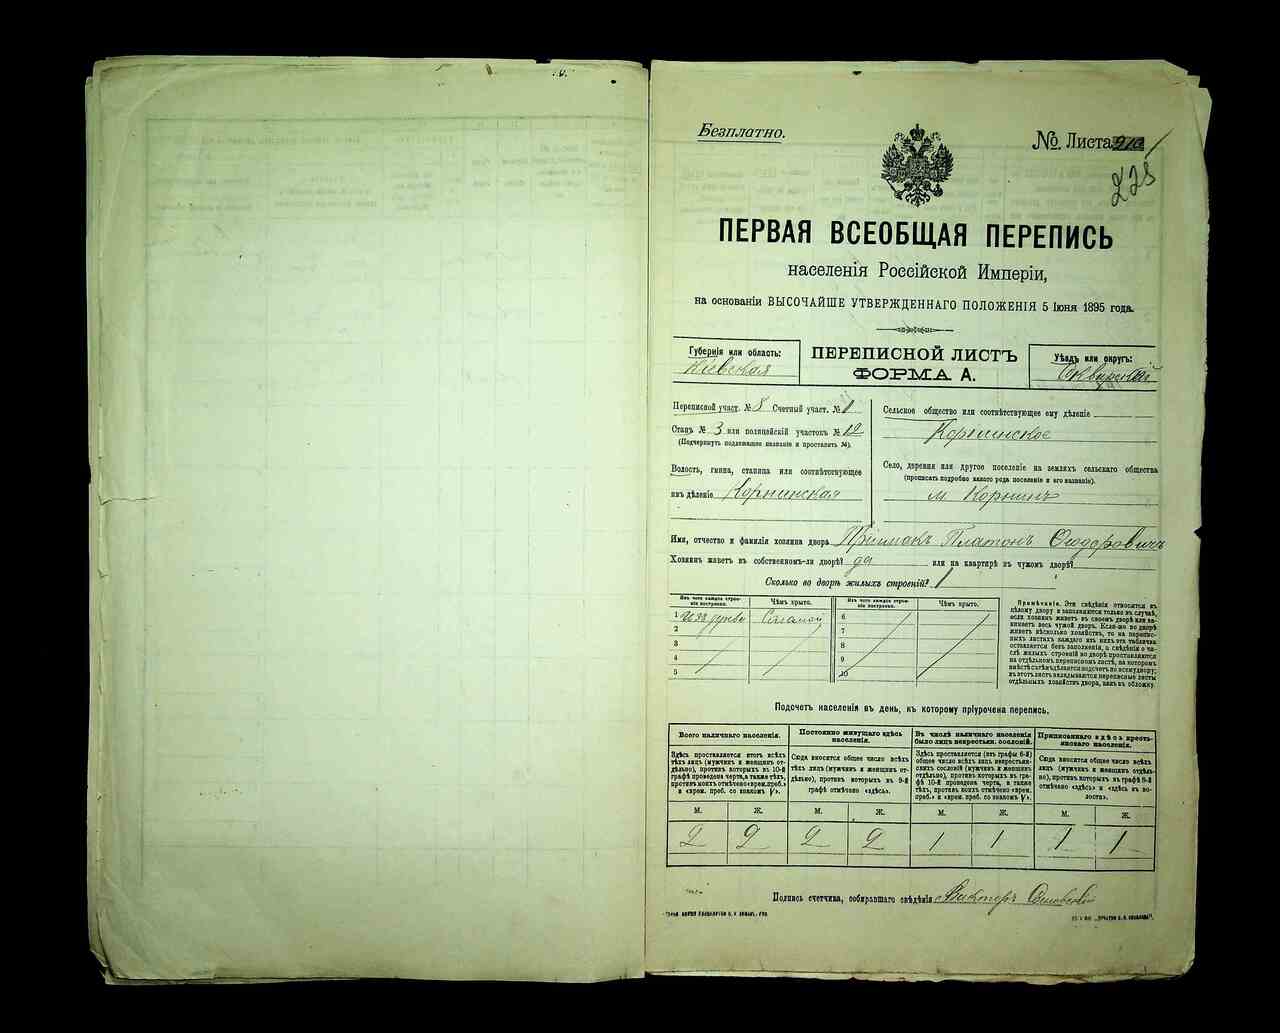 Безплатно.
№ Листа 210
225
ПЕРВАЯ ВСЕОБЩАЯ ПЕРЕПИСЬ
населенія Россійской Имперіи,
на основаніи ВЫСОЧАЙШЕ УТВЕРЖДЕННАГО ПОЛОЖЕНІЯ 5 Іюня 1895 года.
Губернія или область:
Кіевская
ПЕРЕПИСНОЙ ЛИСТЪ
ФОРМА А.
Уѣздъ или округъ:
Сквирскій
Переписной участ. № 8 Счетный участ. № 1
Станъ № 3 или полицейскій участокъ № 12
(Подчеркнуть подлежащее названіе и проставить №).
Волость, гмина, станица или соотвѣтствующее
имъ дѣленіе Корнинская
Сельское общество или соотвѣтствующее ему дѣленіе
Корнинское
Село, деревня или другое поселеніе на земляхъ сельскаго общества
(прописать подробно какого рода поселеніе и его названіе).
м Корнинъ
Имя, отчество и фамилія хозяина двора Приймакъ Платонъ Ѳиодоровичъ
Хозяинъ живетъ въ собственномъ-ли дворѣ? да или на квартирѣ въ чужомъ дворѣ?
Сколько во дворѣ жилыхъ строеній? 1
Изъ чего каждое строе-
ніе построено.
Чѣмъ крыто.
Изъ чего каждое строе-
ніе построено.
Чѣмъ крыто.
1 Изъ дерева Соломой
2
3
4
5
6
7
8
9
10
Примѣчаніе. Эти свѣдѣнія относятся къ
цѣлому двору и заполняются только въ случаѣ,
если хозяинъ живетъ въ своемъ дворѣ или за-
нимаетъ весь чужой дворъ. Если-же во дворѣ
живетъ нѣсколько хозяйствъ, то на перепис-
ныхъ листахъ каждаго изъ нихъ эта табличка
оставляется безъ заполненія, а свѣдѣнія о чи-
слѣ жилыхъ строеній во дворѣ проставляются
на отдѣльномъ переписномъ листѣ, на которомъ
вмѣстѣ съ тѣмъ дѣлается подсчетъ по всему двору;
въ этотъ листъ вкладываются переписные листы
отдѣльныхъ хозяйствъ двора, какъ въ обложку.
Подсчетъ населенія въ день, къ которому пріурочена перепись.
Всего наличнаго населенія.
Здѣсь проставляется итогъ всѣхъ
тѣхъ лицъ (мужчинъ и женщинъ от-
дѣльно), противъ которыхъ въ 10-й
графѣ проведена черта, а также тѣхъ,
противъ коихъ отмѣчено «врем. преб.»
и «врем. преб. со знакомъ V».
Постоянно живущаго здѣсь
населенія.
Сюда вносится общее число всѣхъ
тѣхъ лицъ (мужчинъ и женщинъ от-
дѣльно), противъ которыхъ въ 9-й
графѣ отмѣчено «здѣсь».
Въ числѣ наличнаго населенія
было лицъ некрестьян. сословій.
Здѣсь проставляется (изъ графы 6-й)
общее число всѣхъ лицъ некрестьян-
скихъ сословій (мужчинъ и женщинъ
отдѣльно), противъ которыхъ въ гра-
фѣ 10-й проведена черта, а также
тѣхъ, противъ коихъ отмѣчено «врем.
преб.» и «врем. преб. со знакомъ V».
Приписаннаго здѣсь кресть-
янскаго населенія.
Сюда вносится общее число всѣхъ
лицъ (мужчинъ и женщинъ отдѣль-
но), противъ которыхъ въ графѣ 8-й
отмѣчено «здѣсь» и «здѣсь въ во-
лости».
М. Ж. М. Ж. М. Ж. М. Ж.
2 2 2 2 1 1 1 1
Подпись счетчика, собиравшаго свѣдѣнія Викторъ